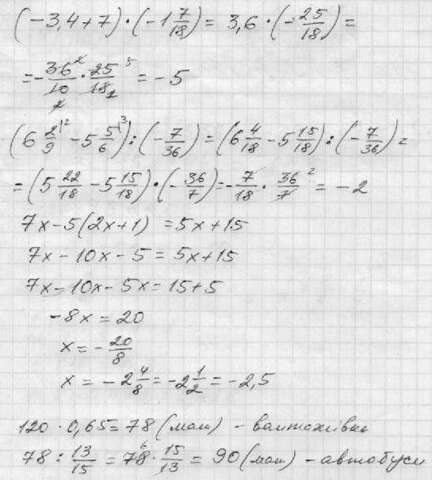 (-3,4+7)·(-1 7/18) = 3,6·(-25/18) =
= -36/10 · 25/18 = -5
(6 2/9 - 5 5/6) : (-7/36) = (6 4/18 - 5 15/18) : (-7/36) =
= (5 22/18 - 5 15/18)·(-36/7) = -7/18 · 36/7 = -2
7x-5(2x+1) = 5x+15
7x-10x-5 = 5x+15
7x-10x-5x = 15+5
-8x = 20
x = -20/8
x = -2 4/8 = -2 1/2 = -2,5
120·0,65 = 78 (маш) - вантажівки
78 : 13/15 = 78 · 15/13 = 90 (маш) - автобуси